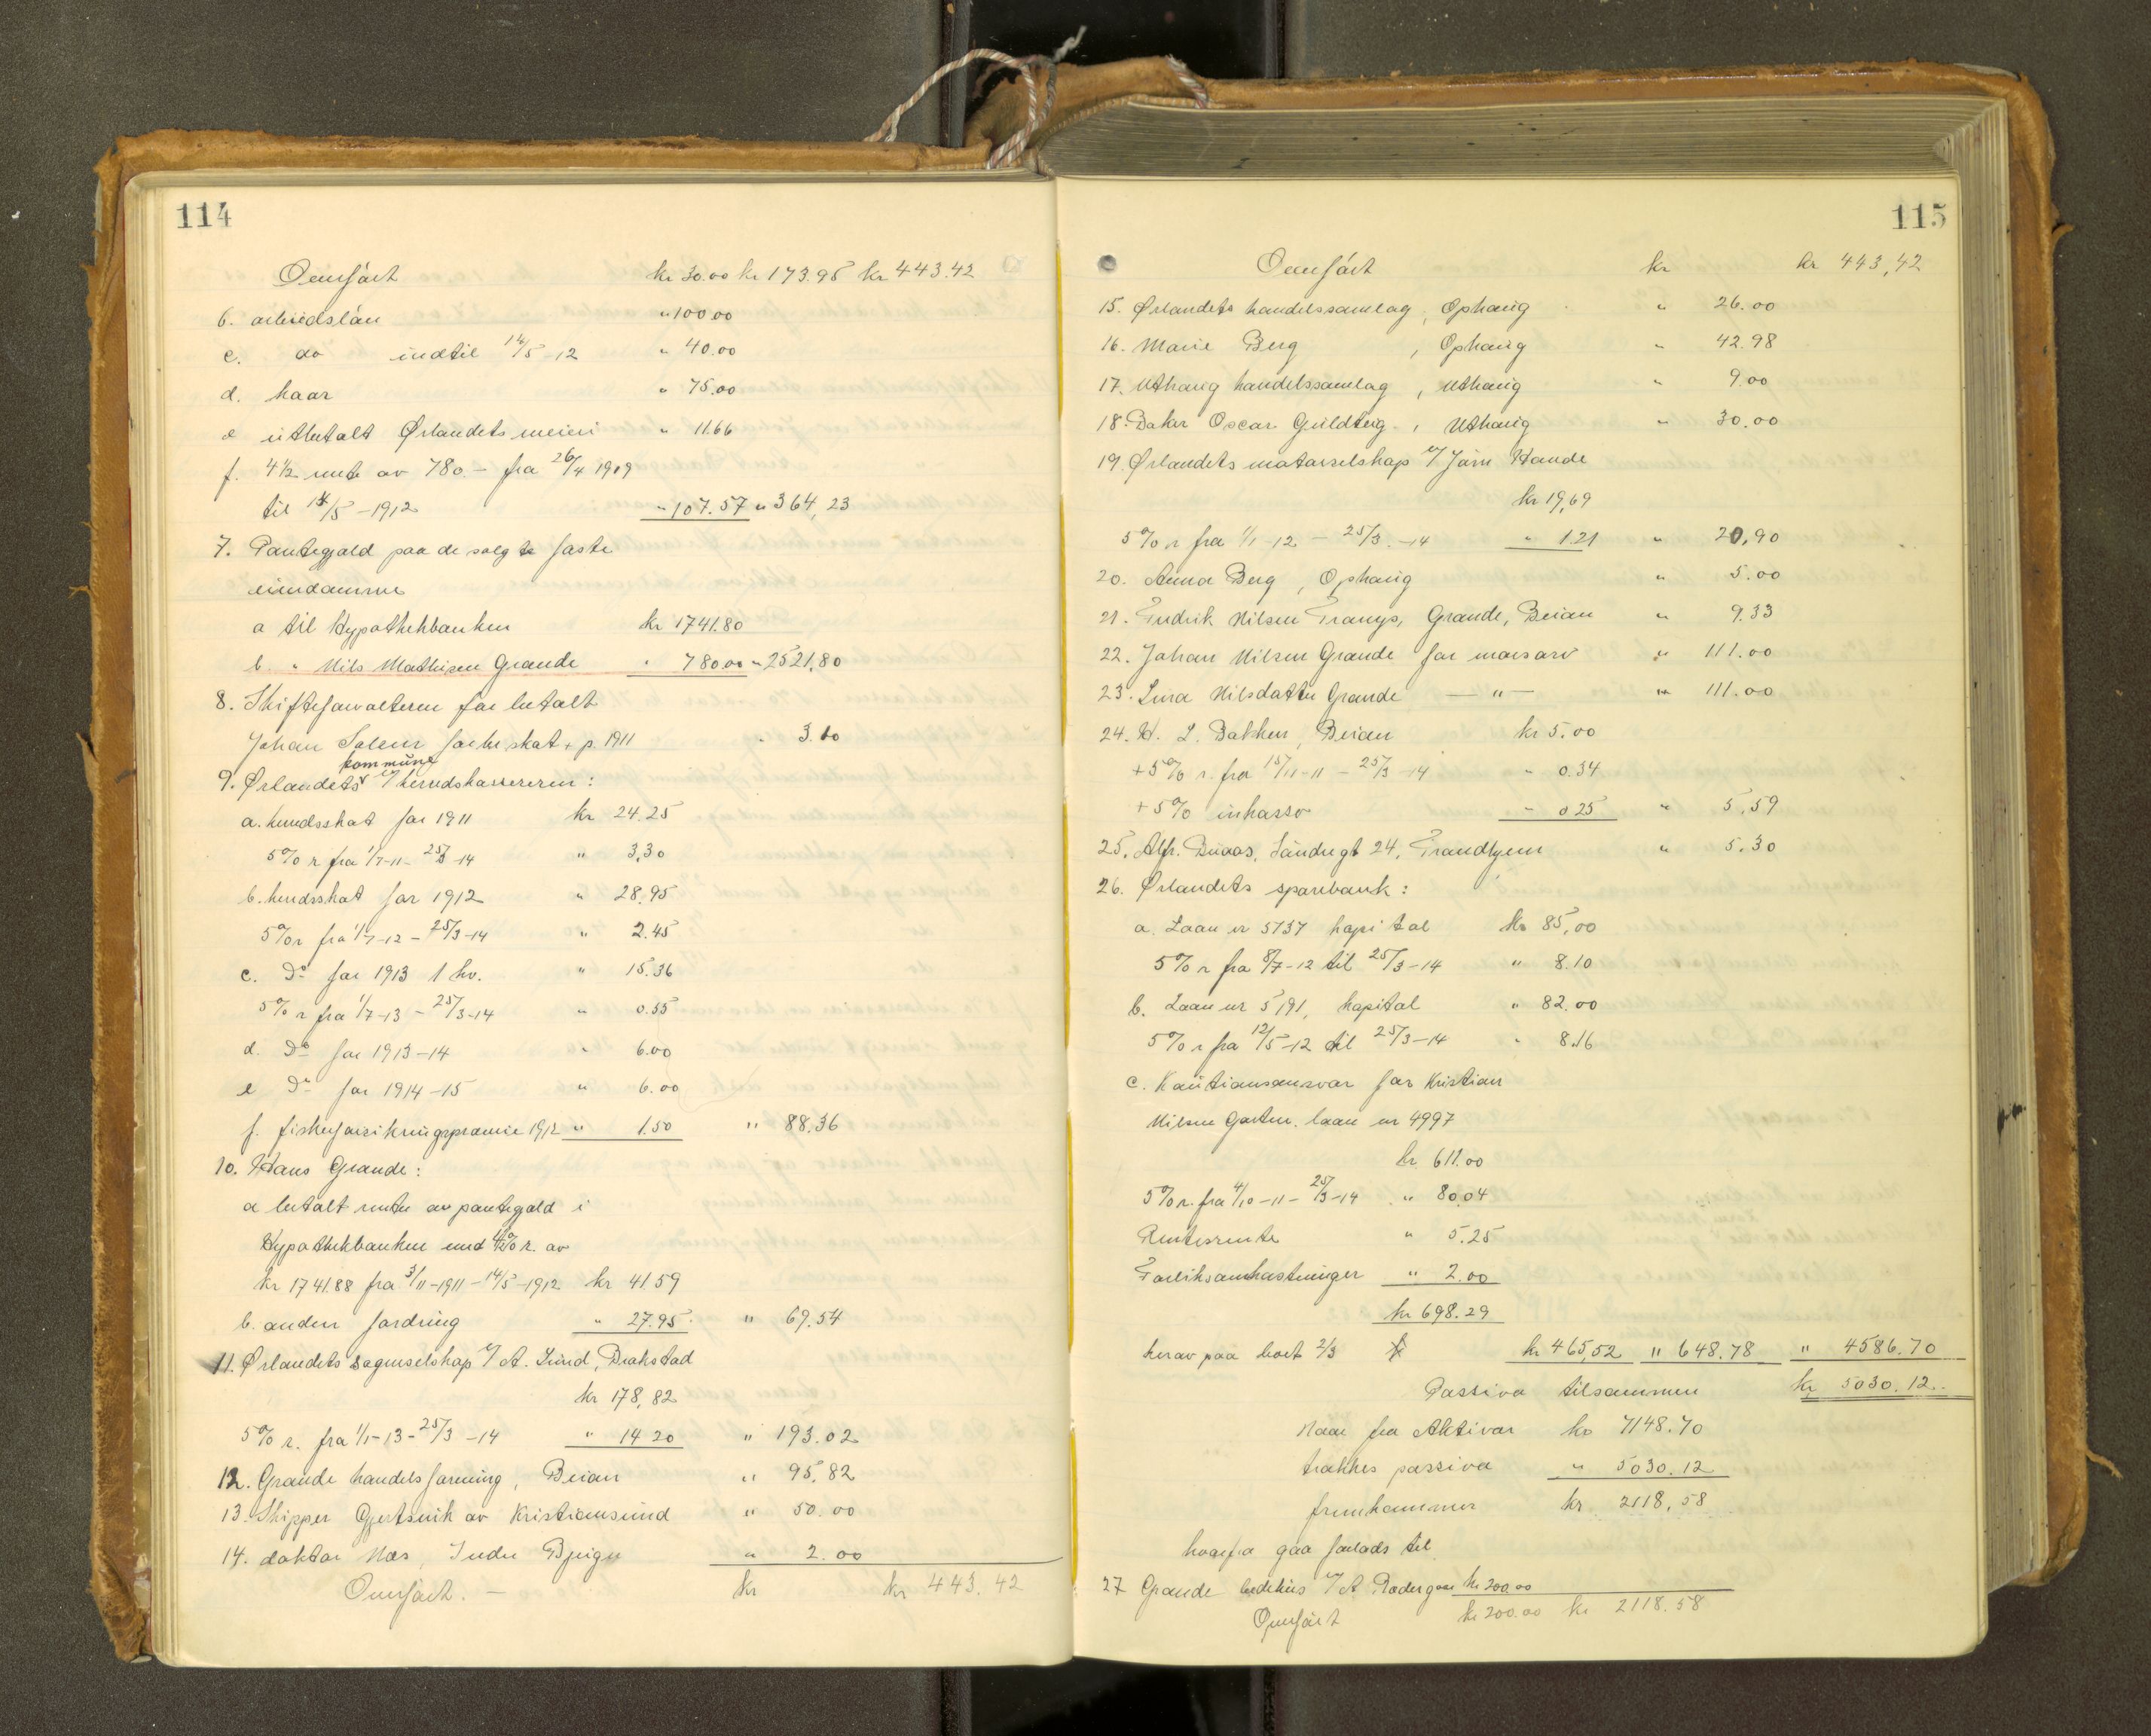 114
Overført kr 30.00 kr 173.95 kr 443.42
b. arbeidsløn " 100.00
c. do indtil 14/5-12 " 40.00
d. haar " 75.00
e utbetalt Ørlandets meieri " 11.66
f. 4½ rente av 780.- fra 26/4 1909
til 14/5-1912 " 107.57 " 364,23
7. Pantegjæld paa de solgte faste
eiendomme
a til Hypothekbanken kr 1741.80
b. " Nils Mathisen Grande " 780.00 " 2521,80
8. Skifteforvalteren for betalt
Johan Solem skat p. 1911 " 3.10
kommune
9. Ørlandets v/ herredskassereren:
a. herredsskat for 1911 kr 24.25
5% r fra 1/7-11 - 25/3-14 " 3,30
b. herredsskat for 1912 " 28.95
5% r fra 1/7-12 - 25/3-14 " 2.45
c. Do for 1913 1 hv. " 15.36
5% r fra 1/7-13 - 25/3-14 " 0.55
d. Do for 1913-14 " 6.00
e Do for 1914-15 " 6.00
f. fiskerforsikringspræmie 1912 " 1.50 " 88.36
10. Hans Grande:
a betalt renter av pantegjæld i
Hypothekbanken med 4½% r. av
kr 1741.88 fra 3/11-1911 - 14/5-1912 kr 41.59
b. anden fordring " 27.95 " 69.54
11. Ørlandets sagmselskap v/ A. Sund, Brekstad
kr 178,82
5% r. fra 1/1-13 - 25/3-14 " 14 20 " 193.02
12. Grande handelsforening, Beian " 95,82
13. Skipper Gjertsvik av Kristiansund " 50.00
14. doktor Næs, Indre Bjugn " 2.00
Overført. - kr kr 443.42
115
Overført kr kr 443,42
15. Ørlandets handelssamlag, Ophaug " 26.00
16. Marie Berg, Ophaug " 42.98
17. Uthaug handelssamlag, Uthaug " 9.00
18. Baker Oscar Guldteig, Uthaug " 30.00
19. Ørlandets motorselskap v/ Jørn Hande
kr 19,69
5% r fra 1/1-12 - 25/3-14 " 1.21 " 20,90
20. Anna Berg, Ophaug " 5.00
21. Fredrik Nilsen Grande, Beian " 9.33
22. Johan Nilsen Grande for morsarv " 111.00
23. Lina Nilsdatter Grande - " - " 111.00
24. H. L. Bakken, Beian kr 5.00
+ 5% r. fra 15/11-11 - 25/3-14 " 0.34
+ 5% inkasso " 0 25 " 5,59
25. Alfr. Buaas, Søndregt 24, Trondhjem " 5.30
26. Ørlandets sparebank:
a. Laan nr 5737 kapital kr 85,00
5% r fra 8/7-12 til 25/3-14 " 8.10
b. Laan nr 5191, kapital " 82.00
5% r fra 12/5-12 til 25/3-14 " 8.16
c. Kautionsansvar for Kristian
Nilsen Garten. laan nr 4997
kr 611.00
5% r. fra 4/10-11 - 25/3-14 " 80.04
Rentesrente " 5.25
Forliksomkostninger " 2.00
kr 698.29
herav paa boet 2/3 kr 465,52 " 648.78 " 4586.70
Passiva tilsammen kr 5030.12
Naar fra Aktivar kr 7148.70
trækkes passiva " 5030.12
fremkommer kr 2118,58
hvorfra gaa forlods til
27 Grande bedehus v/ A. Rødergaar kr 200.00
Overført kr 200.00 kr 2118.58